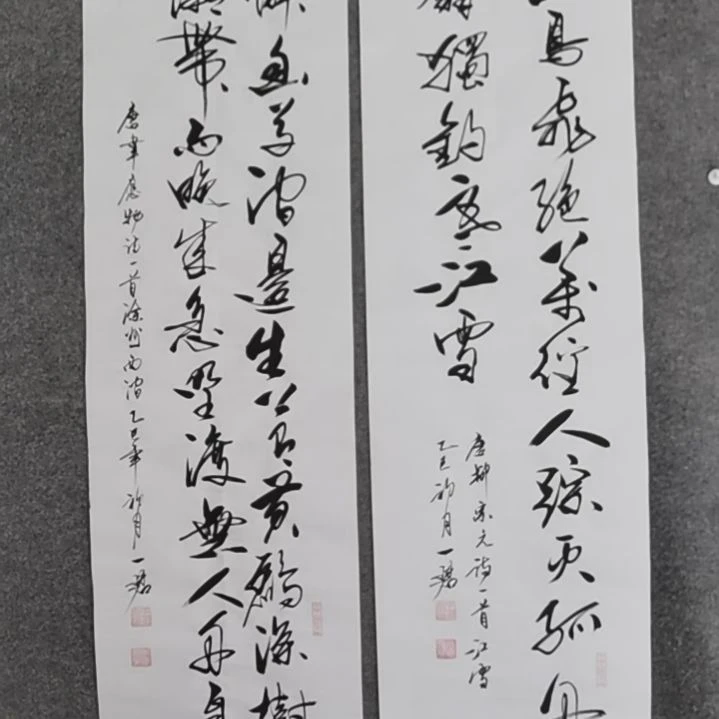 鳥飛絕萬徑人踪灭孤舟
獨釣寒江雪
唐柳宗元詩一首江雪
乙巳初月一
憐幽草澗邊生上有黃鸝深樹
潮帶雨晚來急野渡無人舟自
唐韋應物詩一首滁州西澗乙巳年初月一